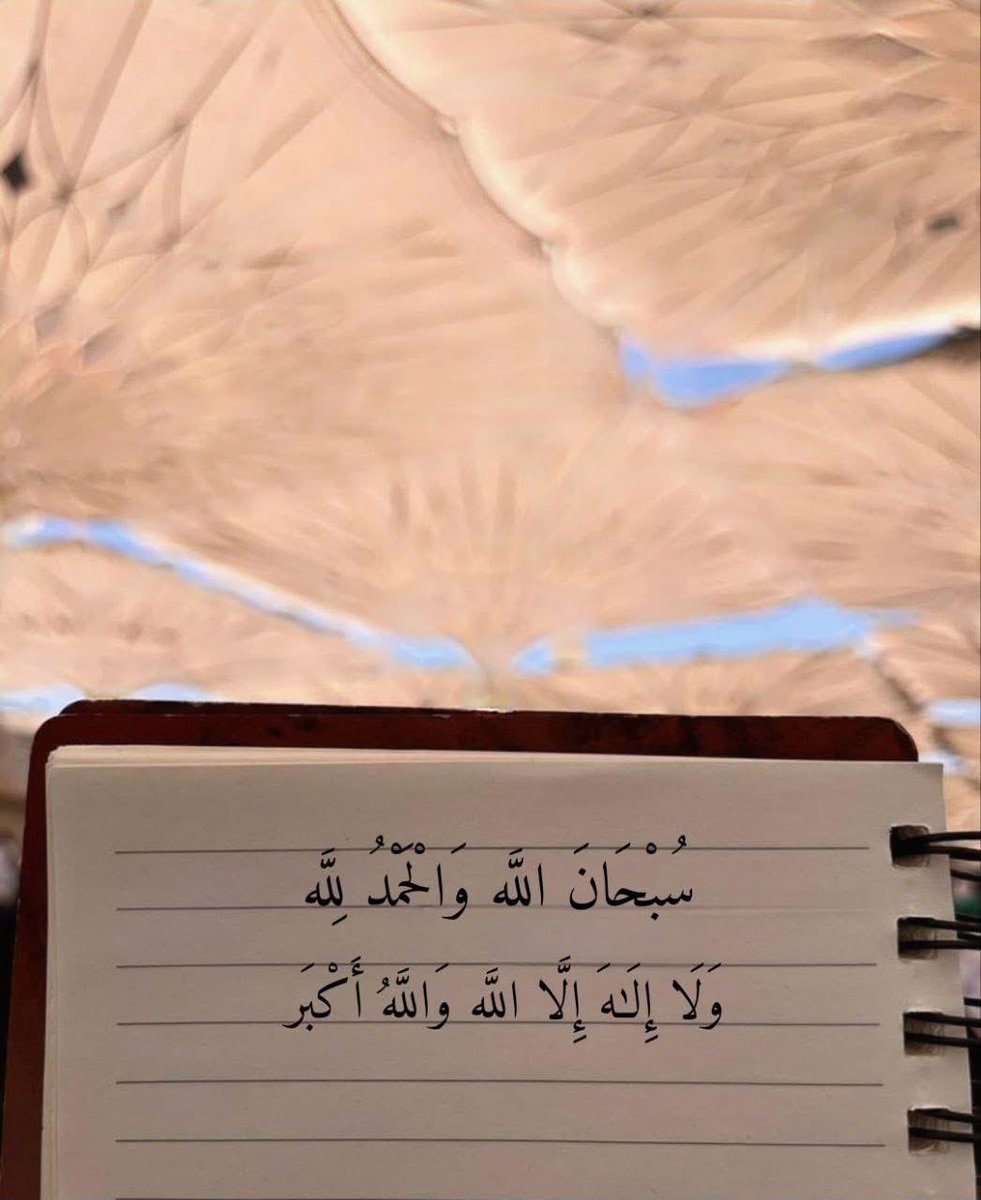 سُبْحَانَ اللَّه وَالْحَمْدُ لِلَّه
وَلَا إِلَـٰهَ إِلَّا اللَّه وَاللَّهُ أَكْبَر